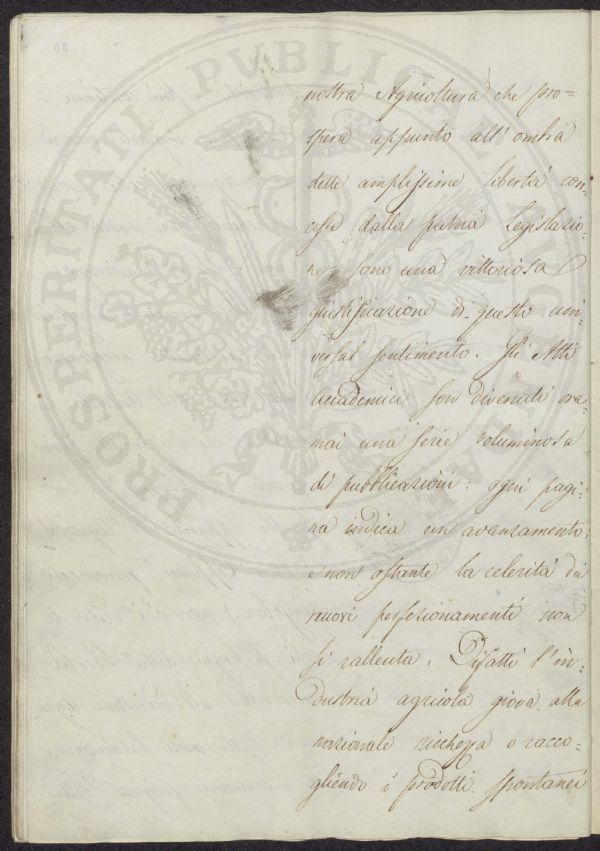 PROSPERITATI PVBLICAE AVGENDAE
nostra Agricoltura che pro=
spera appunto all' ombra
delle amplissime libertà con=
cesse dalla patria Legislazio=
ne sono una vittoriosa
giustificazione di questo uni=
versal sentimento. Gli Atti
Accademici son divenuti ora=
mai una serie voluminosa
di pubblicazioni: ogni pagi=
na indica un avanzamento,
e non ostante la celerità di
nuovi perfezionamenti non
si rallenta. Difatti l' in=
dustria agricola giova alla
nazionale ricchezza o racco=
gliendo i prodotti spontanei